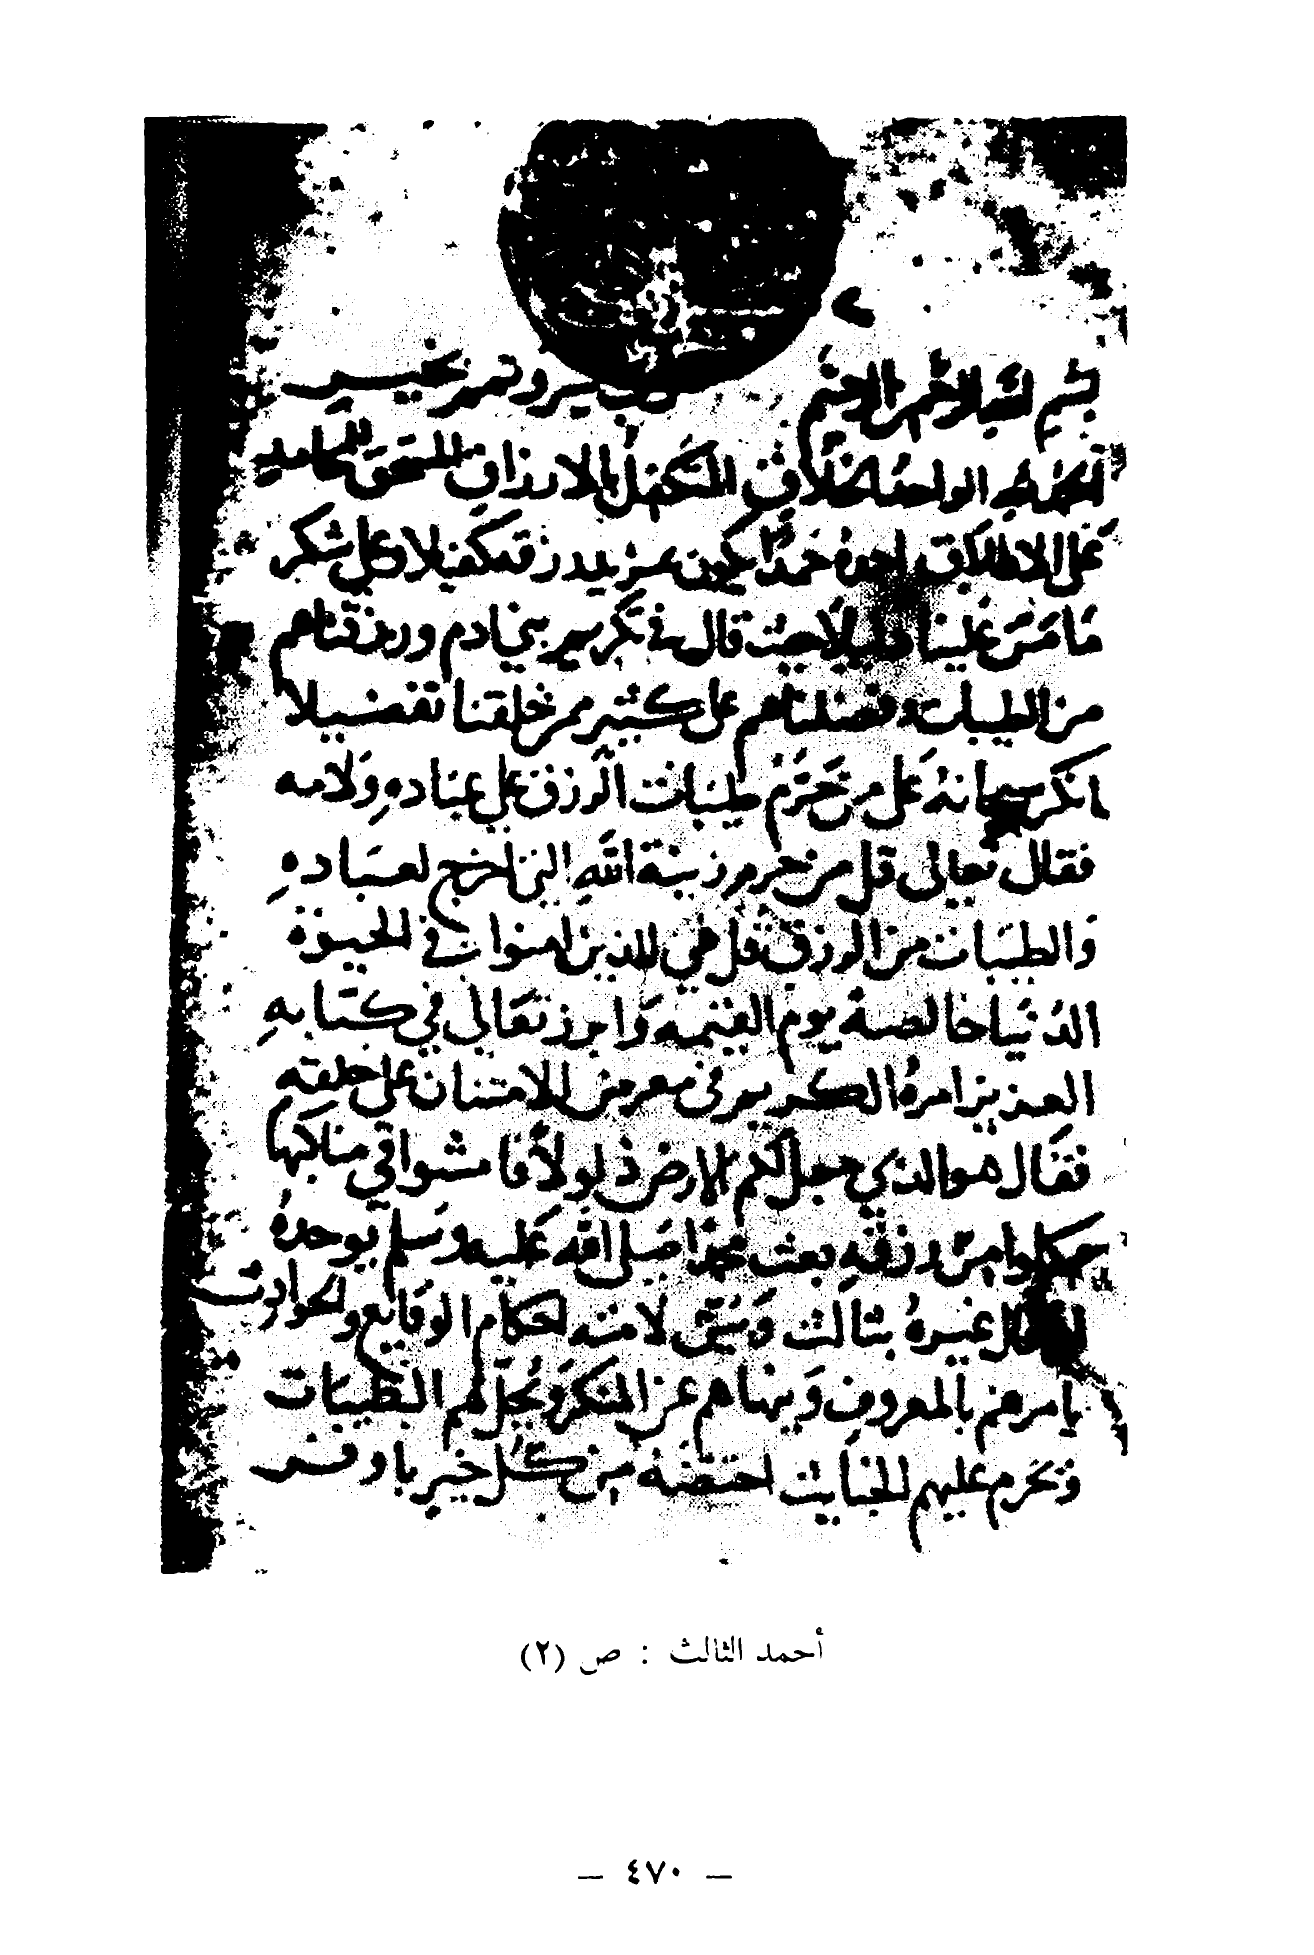 بسم الله الرحمن الرحيم يسر وتمم بخير
الحمد لله الواحد الخلاق المتكفل بالارزاق المستحق المحامد
على الاطلاق احمده حمدا يكون بمزيد رزقه كفيلا وعلى شكر
ما من علينا دليلا حيث قال في تكريم بني ادم ورزقناهم
من الطيبات وفضلناهم على كثير ممن خلقنا تفضيلا
انكر سبحانه على من حرّم طيبات الرزق على عباده ولامه
فقال تعالى قل من حرم زينة الله التي اخرج لعباده
والطيبات من الرزق قل هي للذين امنوا في الحيوة
الدنيا خالصة يوم القيمه وابرز تعالى في كتابه
العزيز امره الكريم في معرض الامتنان على خلقه
فقال هو الذي جعل لكم الارض ذلولا فامشوا في مناكبها
وكلوا من رزقه بعث محمدا صلى الله عليه وسلم بوحده
غيره بثالث وسن لامته احكام الوقايع والحوادث
يامرهم بالمعروف وينهاهم عن المنكر ويحل لهم الطيبات
ويحرم عليهم الخبايث اختصه من كل خير باوفر
أحمد الثالث : ص (٢)
— ٤٧٠ —